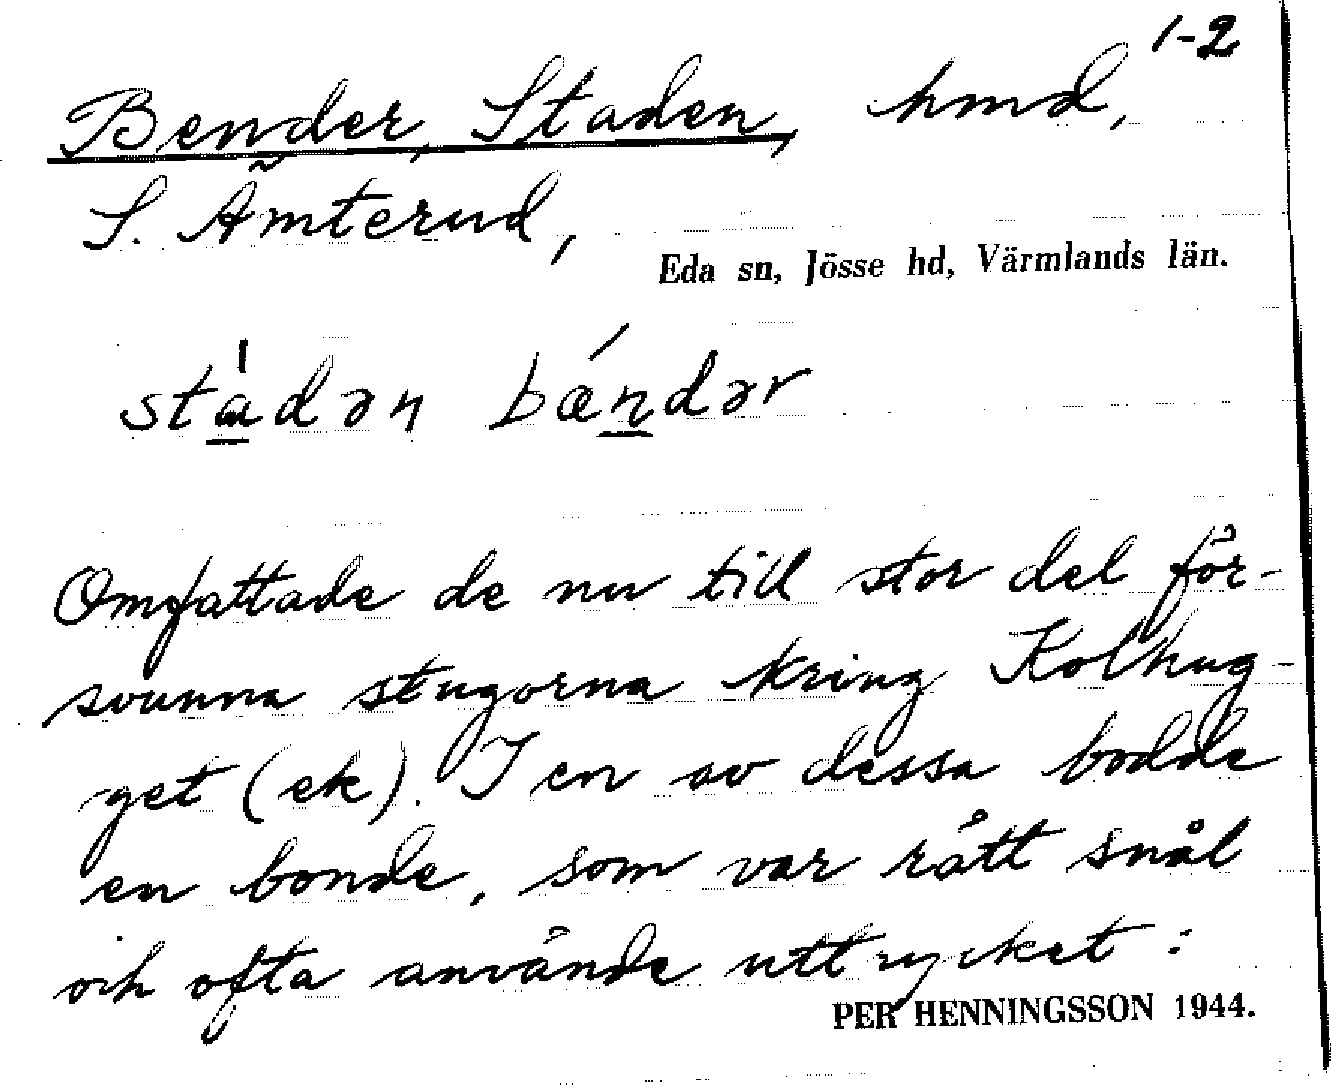 1-2
Bender, Staden, hmd,
S. Ämterud,
Eda sn, Jösse hd, Värmlands län.
stádən bǽndər
Omfattade de nu till stor del för-
svunna stugorna kring Kolhug-
get (ek). I en av dessa bodde
en bonde, som var rått snål
och ofta använde uttrycket:
PER HENNINGSSON 1944.